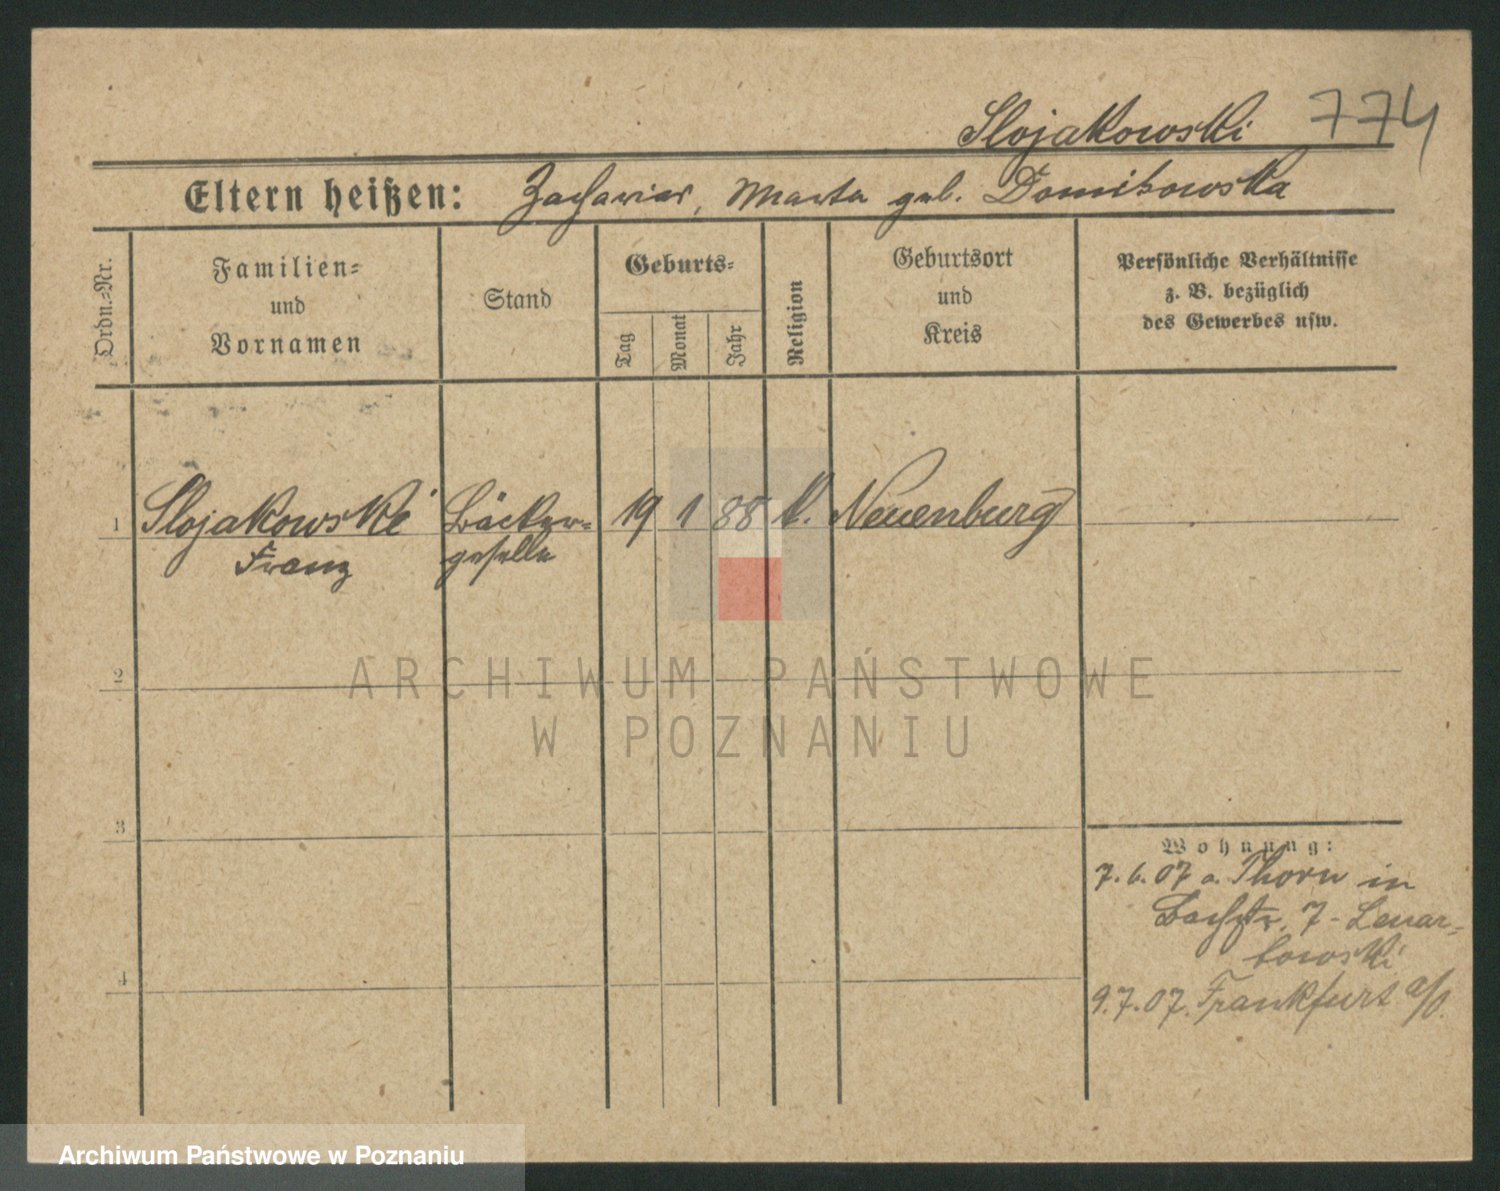 Slojakowski 774
Eltern heißen: Zacharias, Marta geb. Domikowska
Ordn.-Nr.
Familien-
und
Vornamen
Stand
Geburts-
Tag
Monat
Jahr
Religion
Geburtsort
und
Kreis
Persönliche Verhältnisse
z. B. bezüglich
des Gewerbes usw.
1 Slojakowski Bäcker- 19 1 88 k. Neuenburg
Franz geselle
2
ARCHIWUM PAŃSTWOWE
W POZNANIU
3
Wohnung:
7.6.07 a. Thorn in
Bachstr. 7 -
4
9.7.07. Frankfurt a/O.
Archiwum Państwowe w Poznaniu